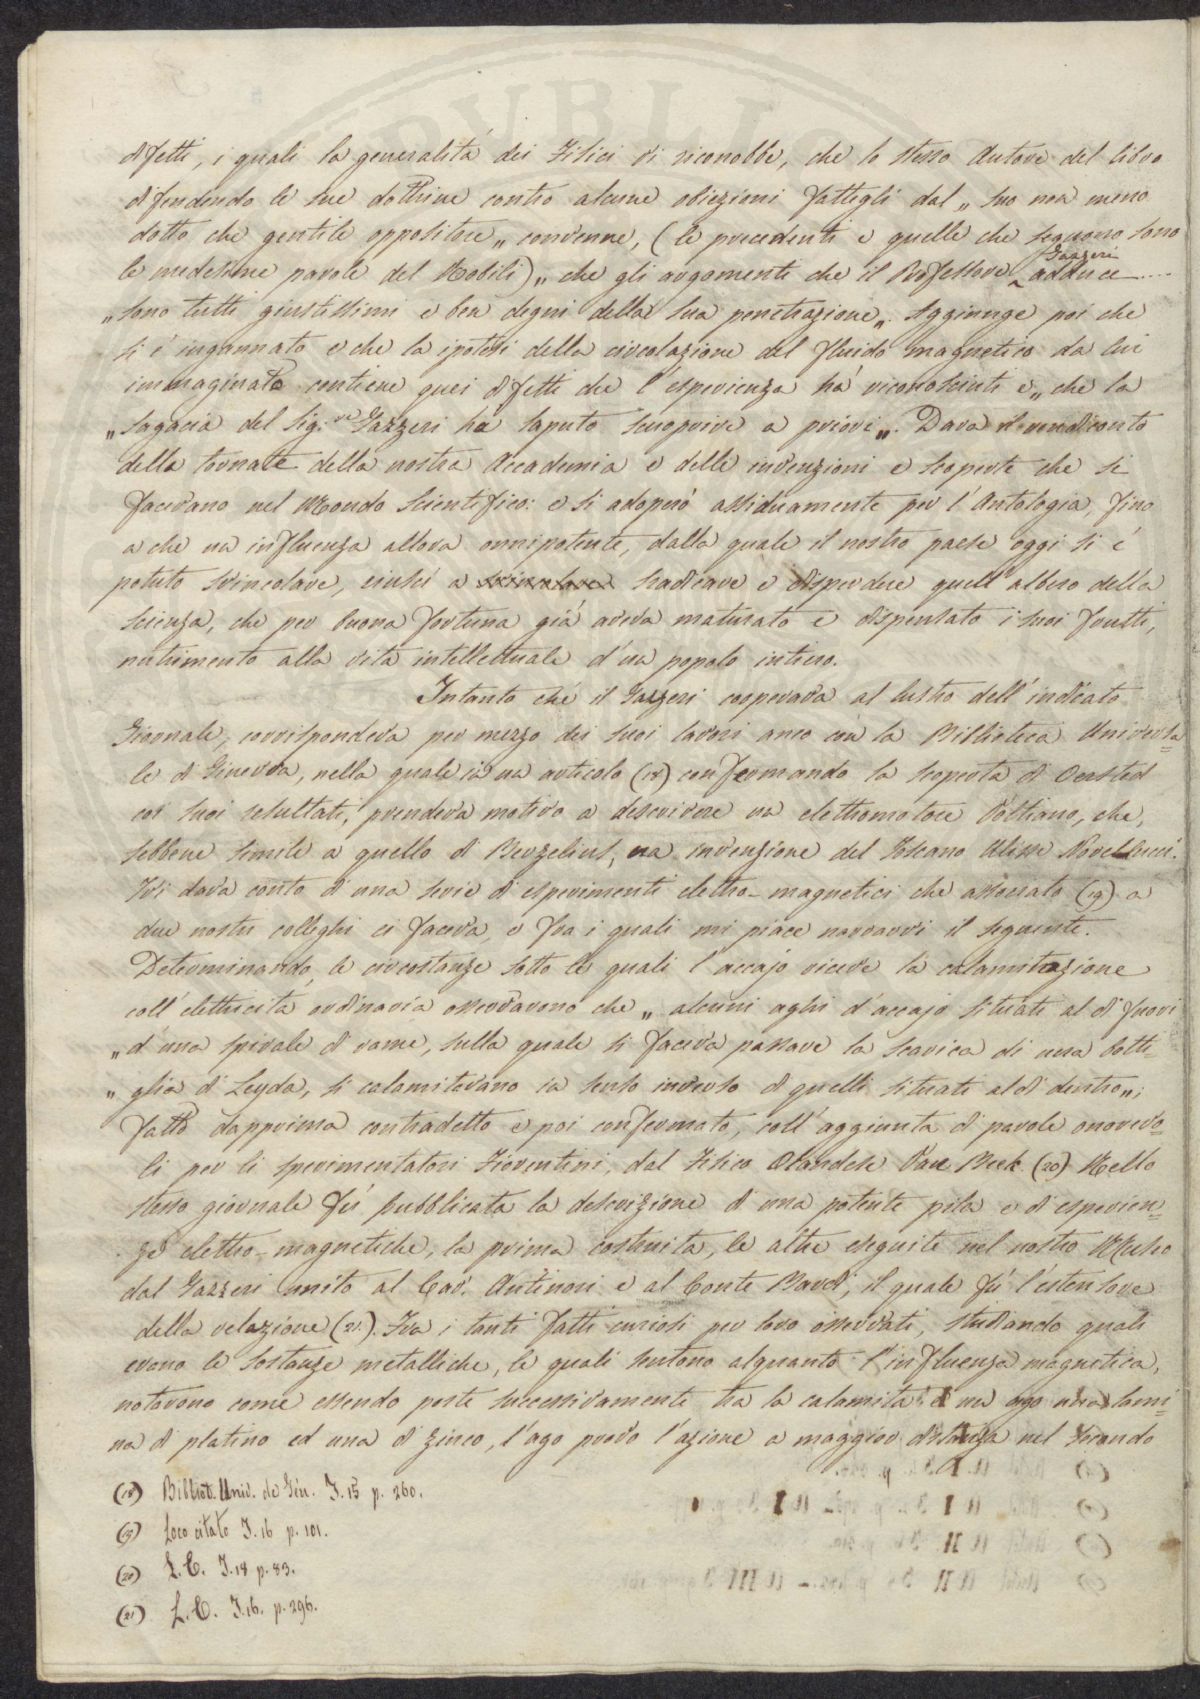 difetti, i quali la generalità dei Fisici vi riconobbe, che lo stesso Autore del libro
difendendo le sue dottrine contro alcune obiezioni fattegli dal „ suo non meno
dotto che gentile oppositore „ convenne, (le precedenti e quelle che seguono sono
le medesime parole del Nobili) „ che gli argomenti che il Professore Gazzeri adduce ....
„ sono tutti giustissimi e ben degni della sua penetrazione „. Aggiunge poi che
si è ingannato e che la ipotesi della circolazione del fluido magnetico da lui
immaginata contiene quei difetti che l'esperienza ha riconosciuti e „ che la
„ sagacia del Sig.re Gazzeri ha saputo scuoprire a priori „. Dava il rendiconto
della tornate della nostra Accademia e delle invenzioni e scoperte che si
facevano nel Mondo Scientifico: e si adoperò assiduamente per l'Antologia, fino
a che una influenza allora onnipotente, dalla quale il nostro paese oggi si è
potuto svincolare, riuscì a sradicare e disperdere quell'albero della
scienza, che per buona fortuna già aveva maturato e dispensato i suoi frutti,
nutrimento alla vita intellettuale d'un popolo intiero.
Intanto che il Gazzeri cooperava al lustro dell'indicato
Giornale, corrispondeva per mezzo dei suoi lavori anco con la Biblioteca Universa=
le di Ginevra, nella quale in un articolo (18) confermando la scoperta di Oersted
coi suoi resultati, prendeva motivo a descrivere un elettromotore Voltiano, che,
sebbene simile a quello di Berzelius, era invenzione del Toscano Ulisse Novellucci.
Ivi dava conto di una serie di esperimenti elettro-magnetici che associato (19) a
due nostri colleghi ei faceva, e fra i quali mi piace narrarvi il seguente.
Determinando le circostanze sotto le quali l'acciajo riceve la calamitazione
coll'elettricità ordinaria osservarono che „ alcuni aghi d'acciajo situati al di fuori
„ d'una spirale di rame, sulla quale si faceva passare la scarica di una botti-
„ glia di Leyda, si calamitavano in senso inverso di quelli situati al di dentro „;
fatto dapprima contradetto e poi confermato, coll'aggiunta di parole onorevo-
li per li sperimentatori Fiorentini, dal Fisico Olandese Van Beek (20) Nello
stesso giornale fù pubblicata la descrizione di una potente pila e di esperien=
ze elettro-magnetiche, la prima costruita, le altre eseguite nel nostro Museo
dal Gazzeri unito al Cav. Antinori e al Conte Bardi, il quale fù l'estensore
della relazione (21). Fra i tanti fatti curiosi per loro osservati, studiando quali
erano le sostanze metalliche, le quali sentono alquanto l'influenza magnetica,
notarono come essendo poste successivamente tra la calamita e un ago una lami-
na di platino ed una di zinco, l'ago provò l'azione a maggior distanza nel secondo
(18) Bibliot. Univ. de Gén. T. 15 p. 260.
(19) Loco citato T. 16 p. 101.
(20) L. C. T. 18 p. 83.
(21) L. C. T. 16. p. 296.